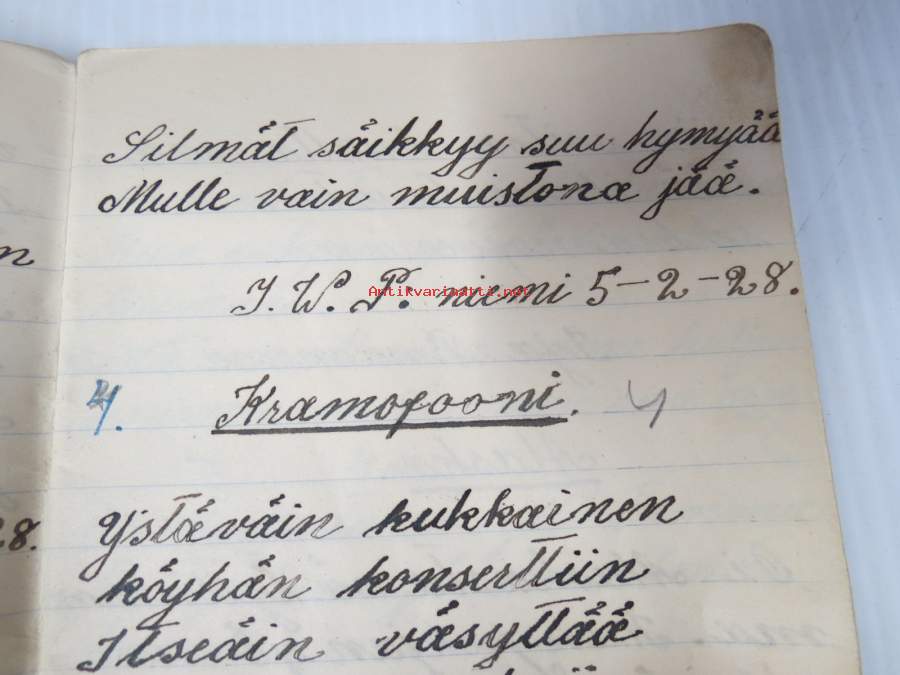 Silmät säikkyy suu hymyjää
Mulle vain muistona jää.
n
J. W. P. niemi 5-2-28.
Antikvariaatti.net
4. Kramofooni. 4
Ystäväin kukkainen
28. köyhän konserttiin
Itseäin väsyttää